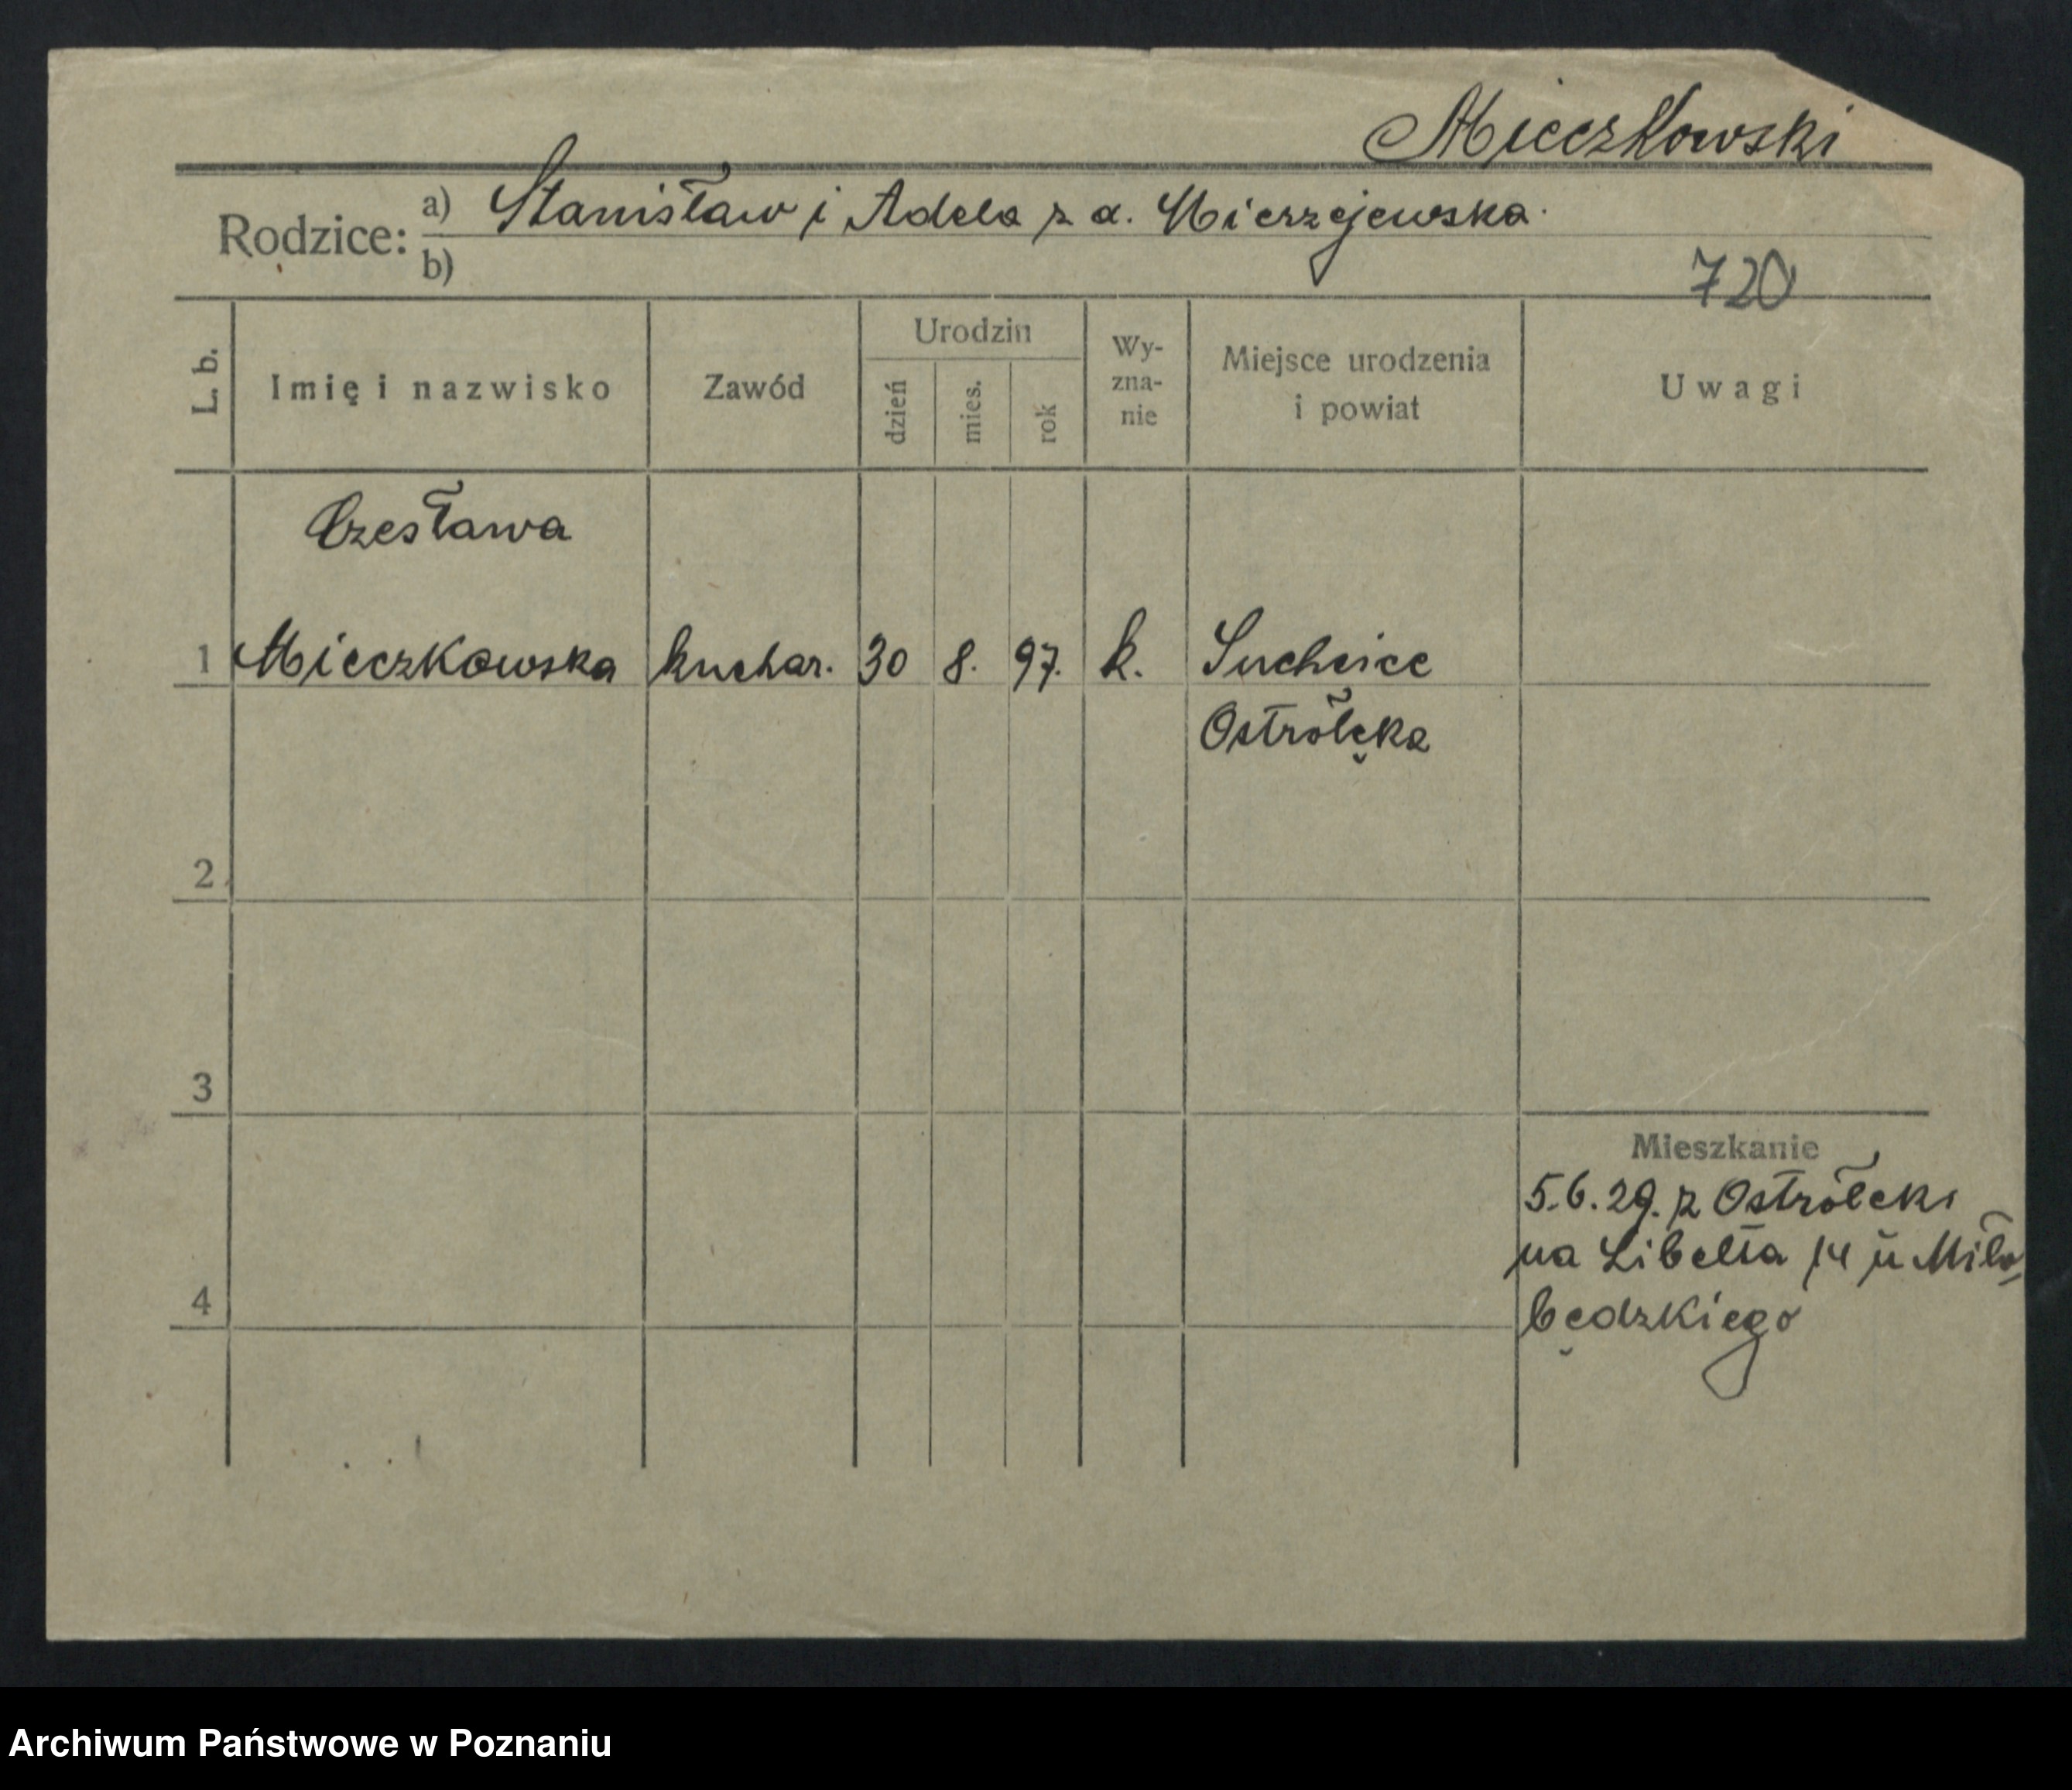 Mieczkowski
Rodzice: a) Stanisław i Adela z d. Mierzejewska.
b)
720
L. b.
Imię i nazwisko
Zawód
Urodzin
dzień
mies.
rok
Wy-
zna-
nie
Miejsce urodzenia
i powiat
Uwagi
Czesława
1 Mieczkowska kuchar. 30 8. 97. k. Suchcice
Ostrołęka
2
3
Mieszkanie
5.6.29. z Ostrołęki
na Libelta 14 u Miło-
4
będzkiego
Archiwum Państwowe w Poznaniu